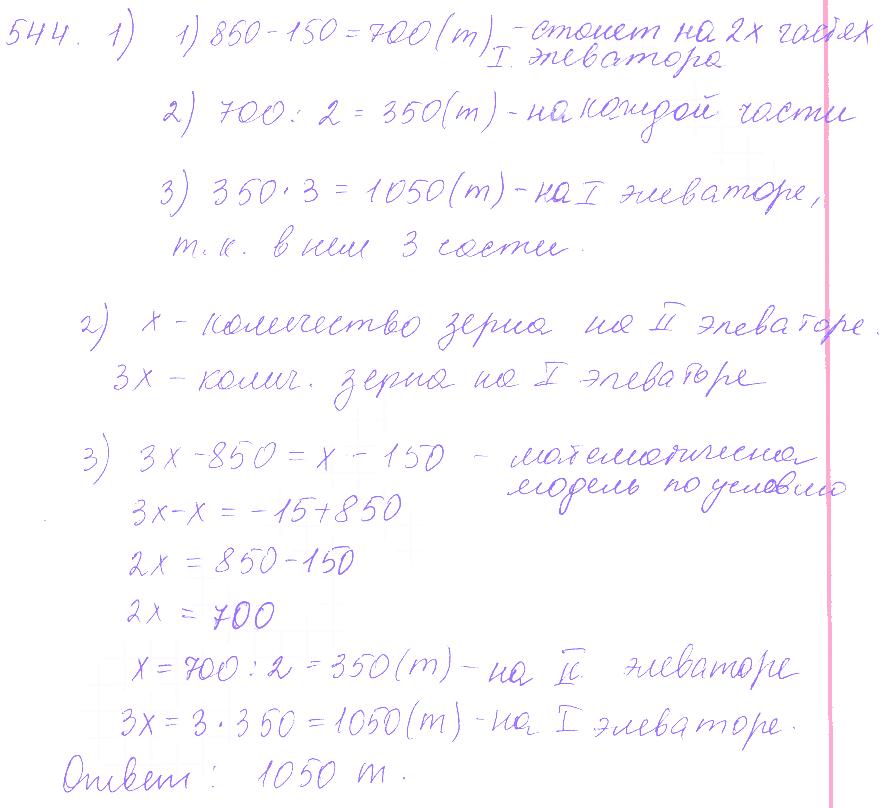 544. 1) 1) 850 - 150 = 700 (т) - станет на 2х частях
I. элеватора
2) 700 : 2 = 350 (т) - на каждой части
3) 350 · 3 = 1050 (т) - на I элеваторе,
т.к. в нем 3 части.
2) х - количество зерна на II элеваторе.
3х - колич. зерна на I элеваторе
3) 3х - 850 = х - 150 - математическая
модель по условию
3х - х = -15 + 850
2х = 850 - 150
2х = 700
х = 700 : 2 = 350 (т) - на II элеваторе
3х = 3 · 350 = 1050 (т) - на I элеваторе.
Ответ: 1050 т.